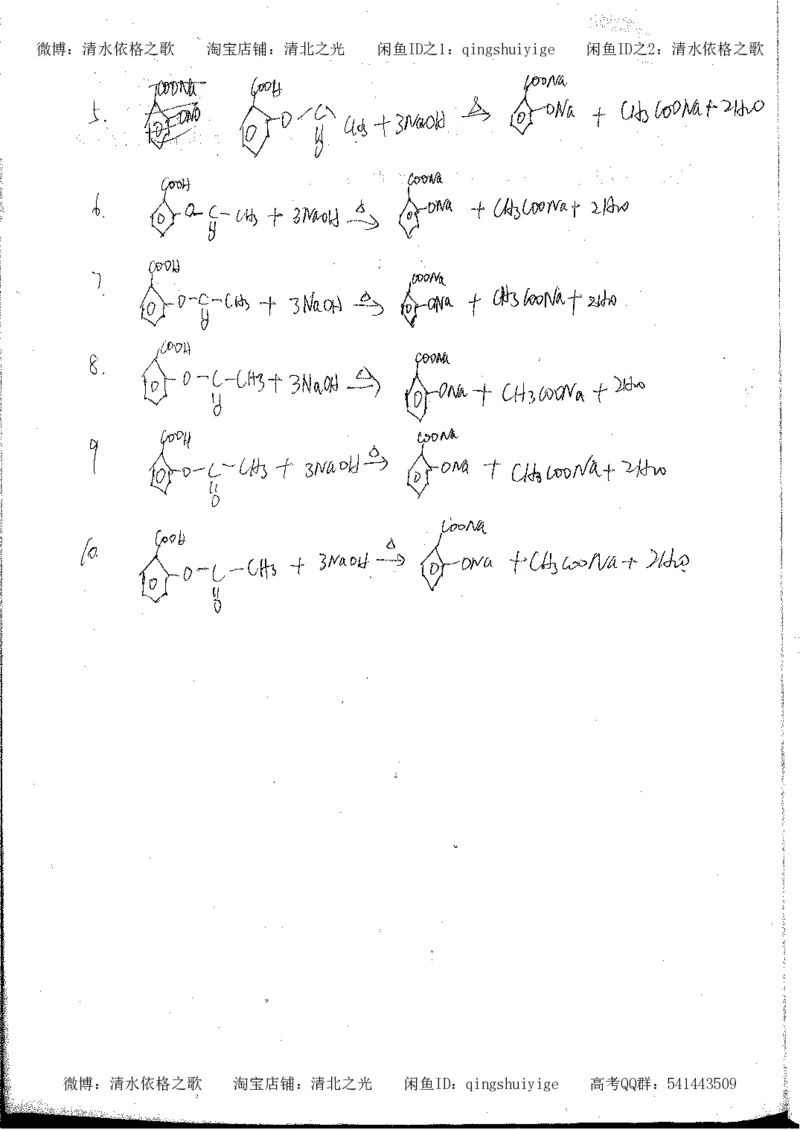 微博：清水依格之歌 淘宝店铺：清北之光 闲鱼ID之1：qingshuiyige 闲鱼ID之2：清水依格之歌
5. COOH O-C CH3 + 3NaOH △ COONa ONa + CH3COONa + 2H2O
6. COOH O-C-CH3 + 3NaOH △ COONa ONa + CH3COONa + 2H2O
7. COOH O-C-CH3 + 3NaOH △ COONa ONa + CH3COONa + 2H2O
8. COOH O-C-CH3 + 3NaOH △ COONa ONa + CH3COONa + 2H2O
9 COOH O-C-CH3 + 3NaOH △ COONa ONa + CH3COONa + 2H2O
O
10. COOH O-C-CH3 + 3NaOH △ COONa ONa + CH3COONa + 2H2O
O
微博：清水依格之歌 淘宝店铺：清北之光 闲鱼ID：qingshuiyige 高考QQ群：541443509